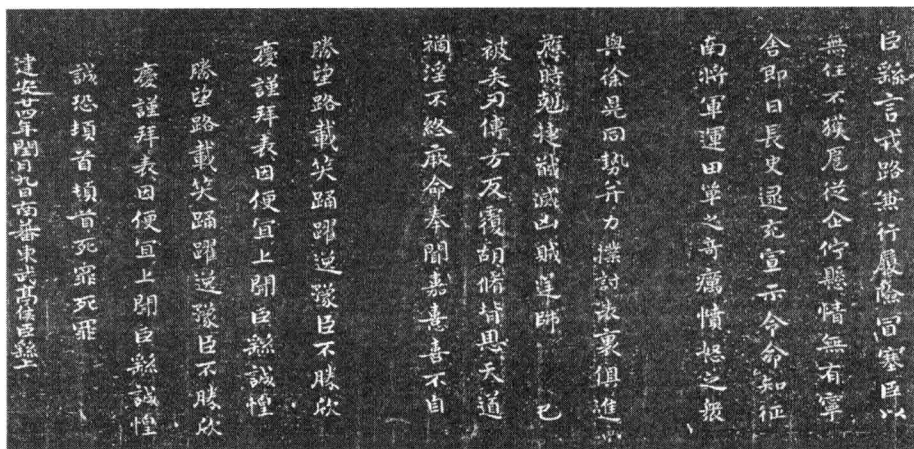 臣繇言戎路兼行履險冒寒臣以
無任不獲扈從企佇懸情無有寧
舍即日長史逯充宣示令命知征
南將軍運田單之奇厲憤怒之衆
與徐晃同勢并力撲討表裏俱進
應時剋捷馘滅凶賊逆帥 已
被矢刃傅方反覆胡脩背恩天道
禍淫不終厥命奉聞嘉憙喜不自
勝望路載笑踊躍逸豫臣不勝欣
慶謹拜表因便宜上聞臣繇誠惶
勝望路載笑踊躍逸豫臣不勝欣
慶謹拜表因便宜上聞臣繇誠惶
誠恐頓首頓首死罪死罪
建安廿四年閏月九日南蕃東武亭侯臣繇上